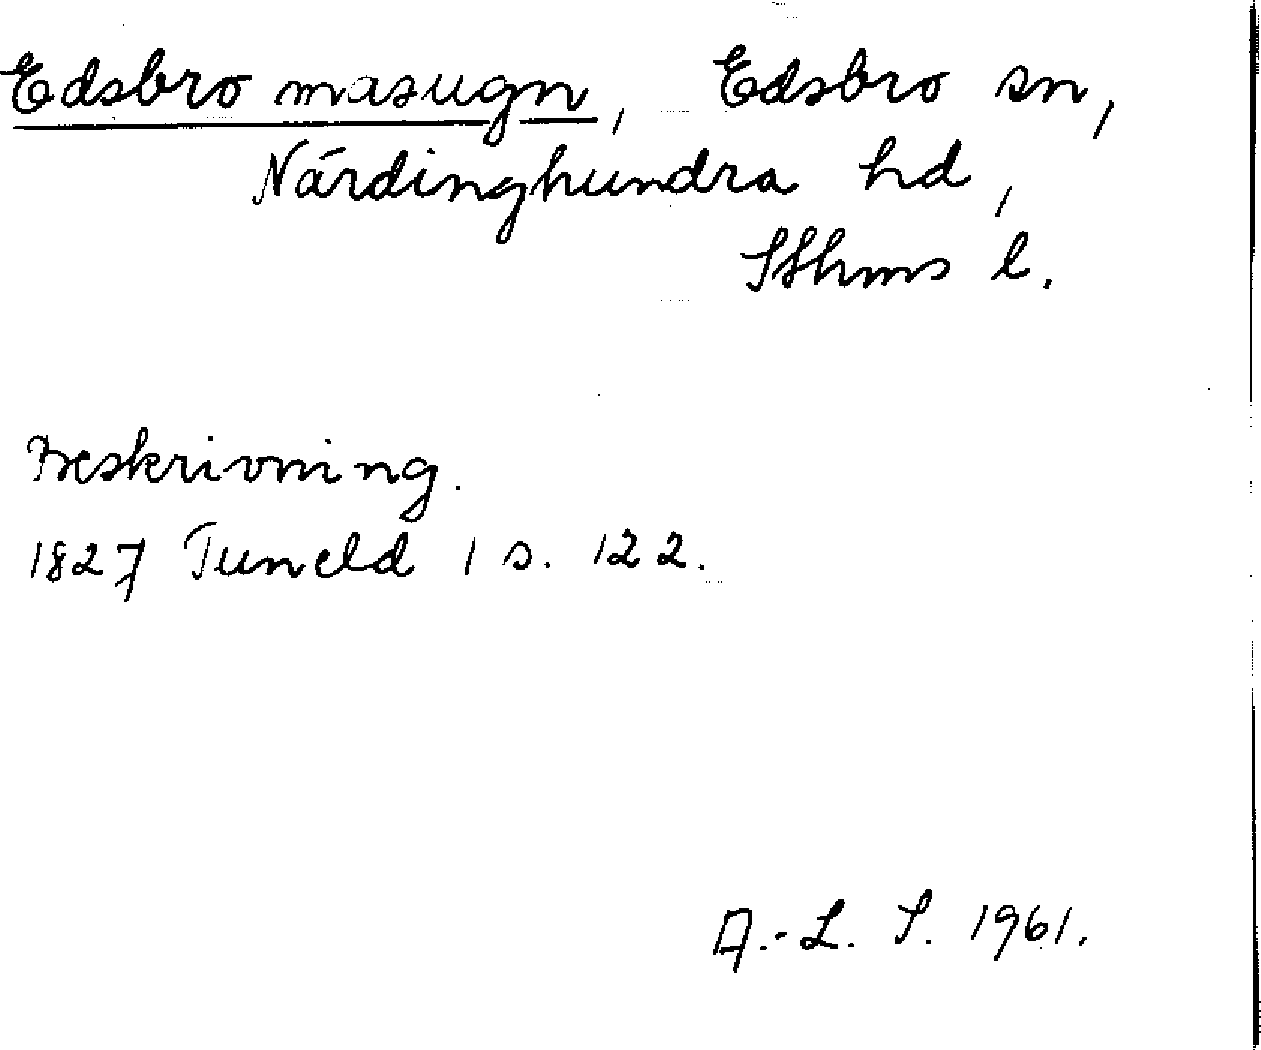 Edsbro masugn, Edsbro sn,
Närdinghundra hd,
Sthms l.
Beskrivning.
1827 Tuneld 1 s. 122.
A.-L. S. 1961.